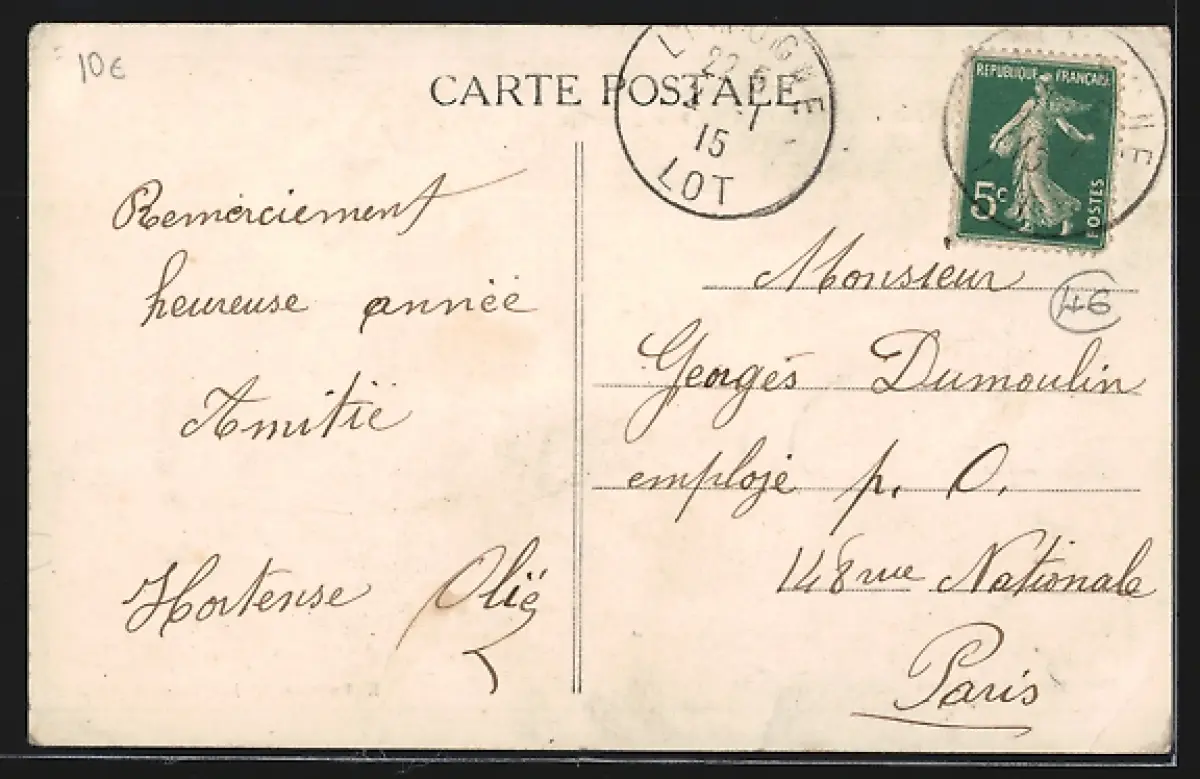 10€
CARTE POSTALE
22 5
-1
15
LOT
REPUBLIQUE FRANÇAISE
5c
POSTES
Remerciement
heureuse année
Amitié
Hortense Olié
Monsieur
46
Georges Dumoulin
employé p. O.
148 rue Nationale
Paris